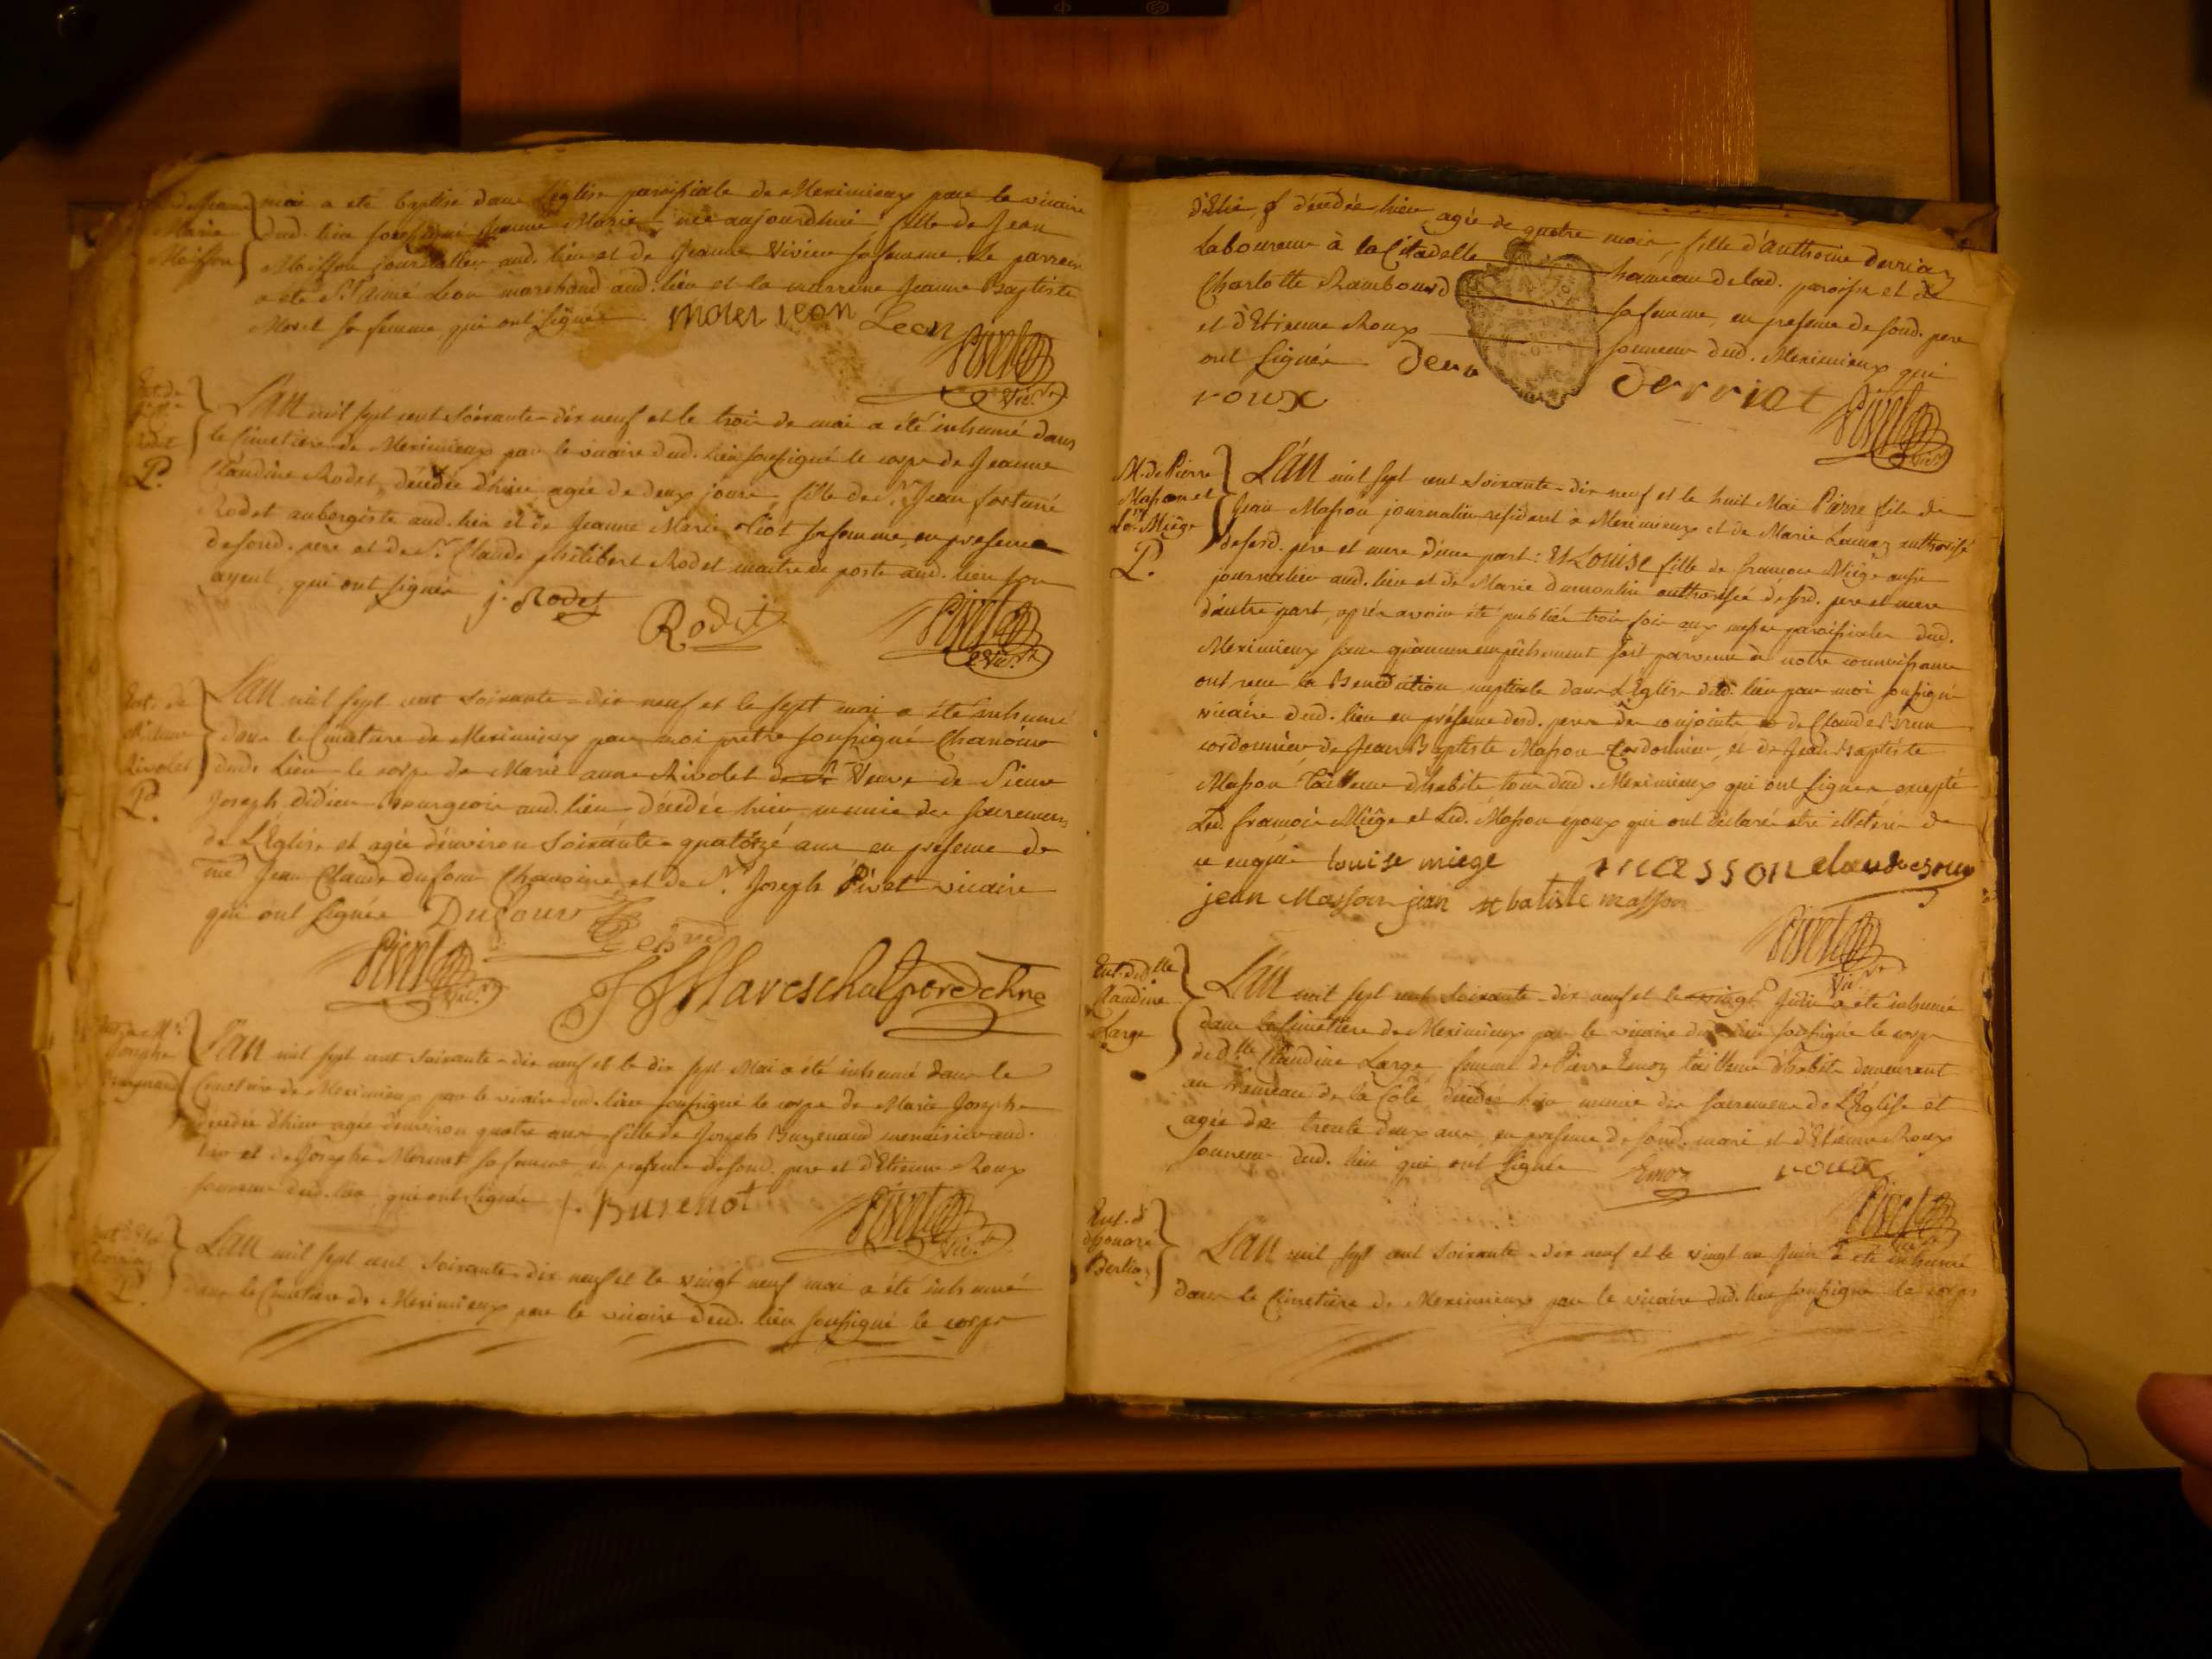 mai a eté baptisé dans l'eglise paroissiale de Meximieux par le vicaire
dud. lieu soussigné Jeanne Marie née aujourdhui fille de Jean
Moisson journallier aud. lieu et de Jeanne Vivier sa femme. le parrein
a été Sr Aimé Leon marchand aud. lieu et la marreine Jeanne Baptiste
Morel sa femme, qui ont signés
Leon
Marie
Moisson
Pivet Vic.re
L'an mil sept cent soixante-dix neuf et le trois de mai a été inhumé dans
le Cimetiere de Meximieux par le vicaire dud. lieu soussigné le corps de Jeanne
Claudine Rodet, décédée d'hier, agée de deux jours, fille de Sr Jean fortuné
Rodet aubergiste aud. lieu et de Jeanne Marie sa femme, en presence
de sond. pere et de Sr Claude philibert Rodet maitre de poste aud. lieu son
ayeul, qui ont signés j. Rodet
Rodet
Pivet Vic.re
L'an mil sept cent soixante-dix neuf et le sept mai a été inhumé
dans le Cimetiere de Meximieux par moi pretre soussigné Chanoine
dudt Lieu le corps de Marie anne Rivolet Veuve de Sieur
Joseph didier Bourgeois aud. lieu décédée hier munie des sacremens
de L'Eglise et agée d'environ soixante-quatorze ans en presence de
Jean Claude dufour Chanoine et de Sr Joseph Pivet vicaire
qui ont signés Dufour
Pivet Vic.re
Mareschal
L'an mil sept cent soixante-dix neuf et le dix sept Mai a été inhumé dans le
Cimetiere de Meximieux par le vicaire dud. lieu soussigné le corps de Marie Josephe
décédée d'hier agée d'environ quatre ans fille de Joseph menuisier aud.
lieu et de Josephe sa femme en presence de sond. pere et d'Etienne Roux
sonneur dud. lieu qui ont signés
Pivet Vic.re
L'an mil sept cent soixante-dix neuf et le vingt neuf mai a été inhumé
dans le Cimetiere de Meximieux par le vicaire dud. lieu soussigné le corps
décédée hier, agée de quatre mois, fille d'Anthoine derriaz
Laboureur à la Citadelle hameau de lad. paroisse et de
Charlotte Rambourd sa femme, en presence de sond. pere
et d'Etienne Roux sonneur dud. Meximieux qui
ont signés derriat
roux
Pivet Vic.re
M. de Pierre
Masson et
Miège
P.
L'an mil sept cent soixante-dix neuf et le huit Mai Pierre fils de
Jean Masson journalier residant à Meximieux et de Marie authorisé
de sesd. père et mere d'une part: Et Louise fille de françois Miège aussi
journalier aud. lieu et de Marie dumoulin authorisée de sesd. pere et mere
d'autre part, après avoir été publiés trois fois aux messes paroissiales dud.
Meximieux sans qu'aucun empêchement soit parvenu à notre connoissance
ont recu la Benediction nuptiale dans L'Eglise dud. lieu par moi soussigné
vicaire dud. lieu en présence desd. peres des conjoints de Claude
cordonnier, de Jean Baptiste Masson Cordonnier, et de Jean Baptiste
Masson Tailleur d'habits tous dud. Meximieux qui ont signés excepté
Led. françois Miège et Led. Masson epoux qui ont déclaré etre illeterés de
ce enquis Louise miege masson
jean Masson jean batiste masson
Pivet Vic.re
Ent. de dlle
Claudine
Large
L'an mil sept cent soixante-dix neuf et le Juin a été inhumé
dans le Cimetiere de Meximieux par le vicaire dud. lieu soussigné le corps
de dlle Claudine Large femme de Pierre tailleur d'habits demeurant
au hameau de la Côte décédée hier munie des sacremens de L'Eglise et
agée de trente deux ans, en presence de sond. mari et d'Etienne Roux
sonneur dud. lieu qui ont signés roux
Pivet
Ent. d'
Berlioz
L'an mil sept cent soixante-dix neuf et le vingt un Juin a été inhumé
dans le Cimetiere de Meximieux par le vicaire dud. lieu soussigné le corps